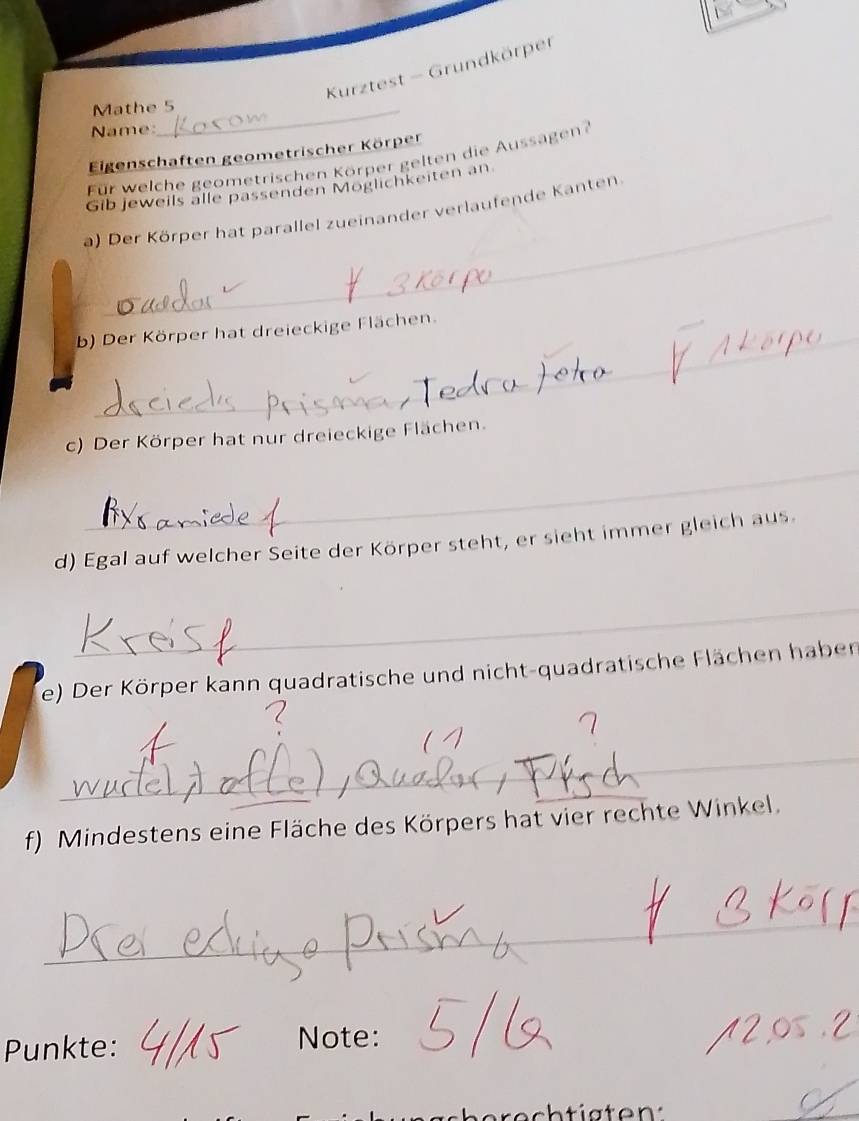 Kurztest – Grundkörper
Mathe 5
Name: Karom
Eigenschaften geometrischer Körper
Für welche geometrischen Körper gelten die Aussagen?
Gib jeweils alle passenden Möglichkeiten an.
a) Der Körper hat parallel zueinander verlaufende Kanten.
✓ 3 Körpe
b) Der Körper hat dreieckige Flächen.
prisma, Tedra tetra 1 Körper
c) Der Körper hat nur dreieckige Flächen.
Pyramiede f
d) Egal auf welcher Seite der Körper steht, er sieht immer gleich aus.
Kreis f
e) Der Körper kann quadratische und nicht-quadratische Flächen haben
f ? (1) ?
wurfel, taffel, Quader, Tisch
f) Mindestens eine Fläche des Körpers hat vier rechte Winkel.
Drei eckige Prisma ✓ 3 Körp
Punkte: 4/15 Note: 5/6 12.05.2